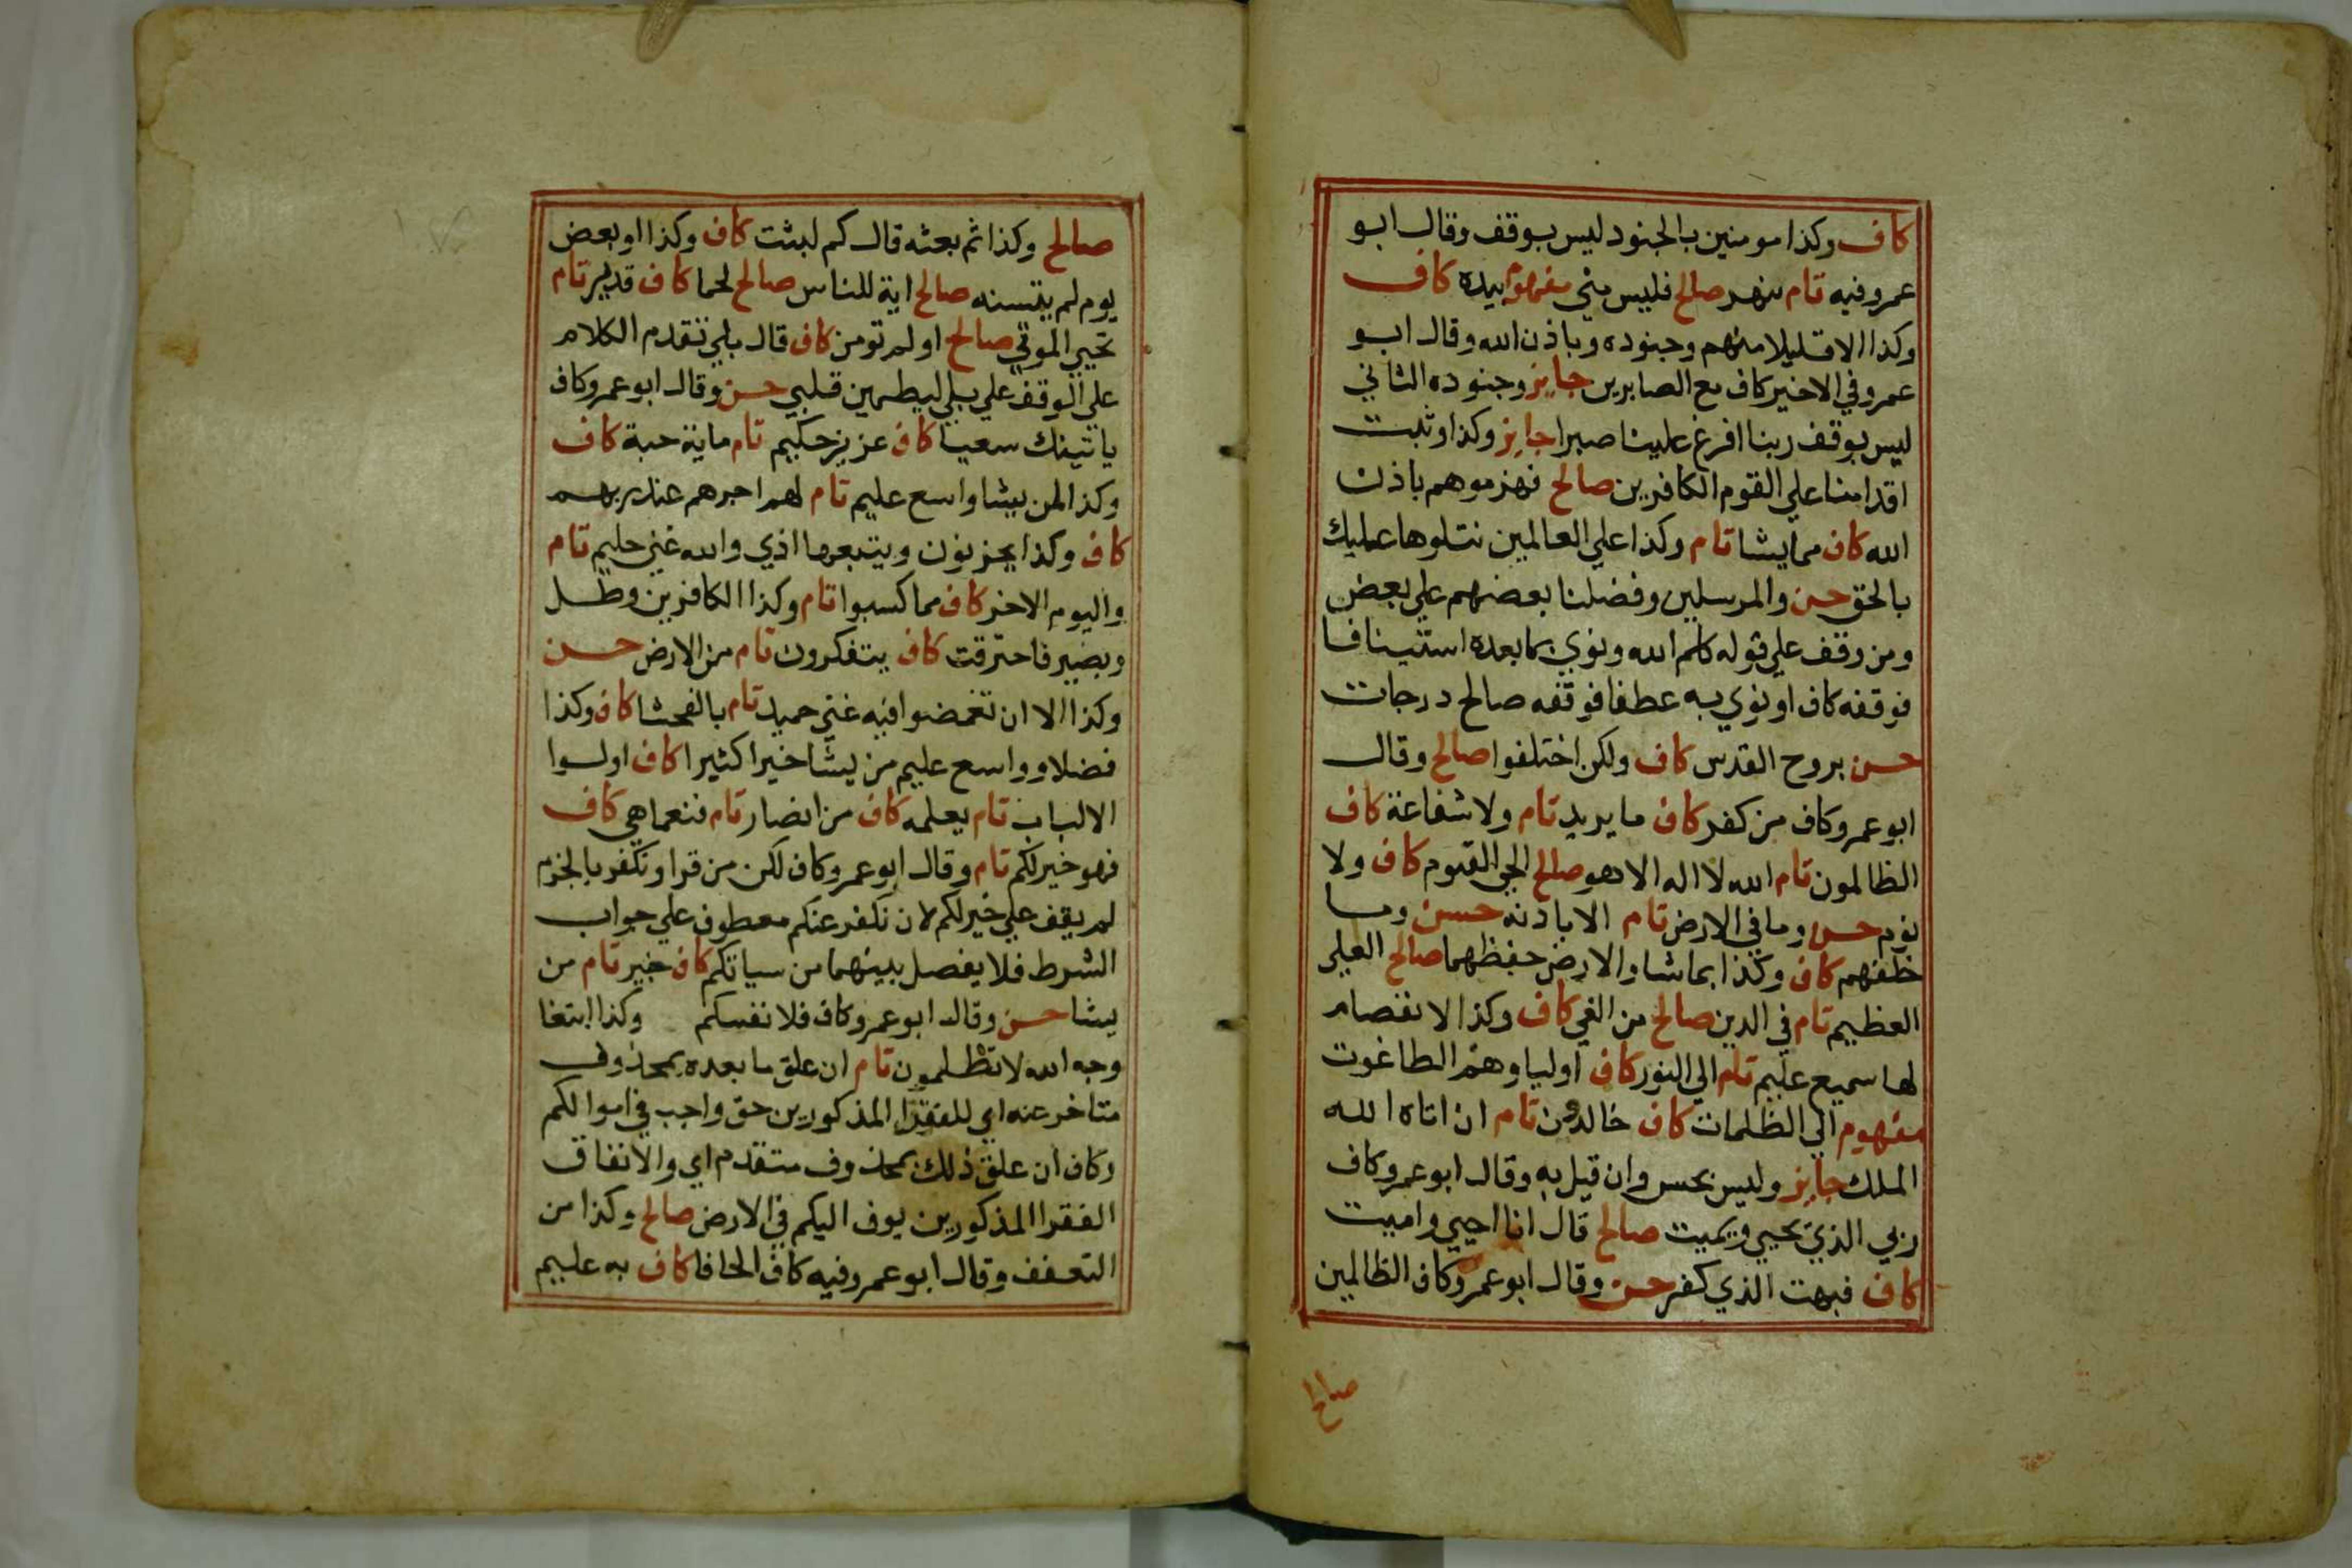 كاف وكذا مومنين بالجنود ليس بوقف وقال ابو
عمرو فيه تام بنهر صالح فليس مني مفهوم بيده كاف
وكذا الا قليلا منهم وجنوده وباذن الله وقال ابو
عمرو في الاخير كاف مع الصابرين جايز وجنوده الثاني
ليس بوقف ربنا افرغ علينا صبرا جايز وكذا وثبت
اقدامنا علي القوم الكافرين صالح فهزموهم باذن
الله كاف مما يشا تام وكذا علي العالمين نتلوها عليك
بالحق حسن والمرسلين وفضلنا بعضهم علي بعض
ومن وقف علي قوله كلم الله ونوي بما بعده استينافا
فوقفه كاف او نوي به عطفا فوقفه صالح درجات
حسن بروح القدس كاف ولكن اختلفوا صالح وقال
ابو عمرو كاف من كفر كاف ما يريد تام ولا شفاعة كاف
الظالمون تام الله لا اله الا هو صالح الحي القيوم كاف ولا
نوم حسن وما في الارض تام الا باذنه حسن وما
خلفهم كاف وكذا بما شا والارض حفظهما صالح العلي
العظيم تام في الدين صالح من الغي كاف وكذا لا انفصام
لها سميع عليم تام الي النور كاف اولياوهم الطاغوت
مفهوم الي الظلمات كاف خالدون تام ان اتاه الله
الملك جايز وليس بحسن وان قيل به وقال ابو عمرو كاف
ربي الذي يحيي ويميت صالح قال انا احيي واميت
كاف فبهت الذي كفر حسن وقال ابو عمرو كاف الظالمين
صالح
صالح وكذا ثم بعثه قال كم لبثت كاف وكذا او بعض
يوم لم يتسنه صالح اية للناس صالح لحما كاف قدير تام
تحيي الموتي صالح اولم تومن كاف قال بلي تقدم الكلام
علي الوقف علي بلي ليطمين قلبي حسن وقال ابو عمرو كاف
ياتينك سعيا كاف عزيز حكيم تام ماية حبة كاف
وكذا لمن يشا واسع عليم تام لهم اجرهم عند ربهم
كاف وكذا يحزنون ويتبعها اذي والله غني حليم تام
واليوم الاخر كاف مما كسبوا تام وكذا الكافرين وطل
وبصير فاحترقت كاف يتفكرون تام من الارض حسن
وكذا الا ان تغمضوا فيه غني حميد تام بالفحشا كاف وكذا
فضلا وواسع عليم من يشا خيرا كثيرا كاف اولوا
الالباب تام يعلمه كاف من انصار تام فنعما هي كاف
فهو خير لكم تام وقال ابو عمرو كاف لكن من قرا ونكفر بالجزم
لم يقف علي خير لكم لان نكفر عنكم معطوف علي جواب
الشرط فلا يفصل بينهما من سياتكم كاف خبير تام من
يشا حسن وقال ابو عمرو كاف فلانفسكم وكذا ابتغا
وجه الله لا تظلمون تام ان علق ما بعده بمحذوف
متاخر عنه اي للفقرا المذكورين حق واجب في اموالكم
وكاف ان علق ذلك بمحذوف متقدم اي والانفاق
الفقرا المذكورين يوف اليكم في الارض صالح وكذا من
التعفف وقال ابو عمرو فيه كاف الحافا كاف به عليم